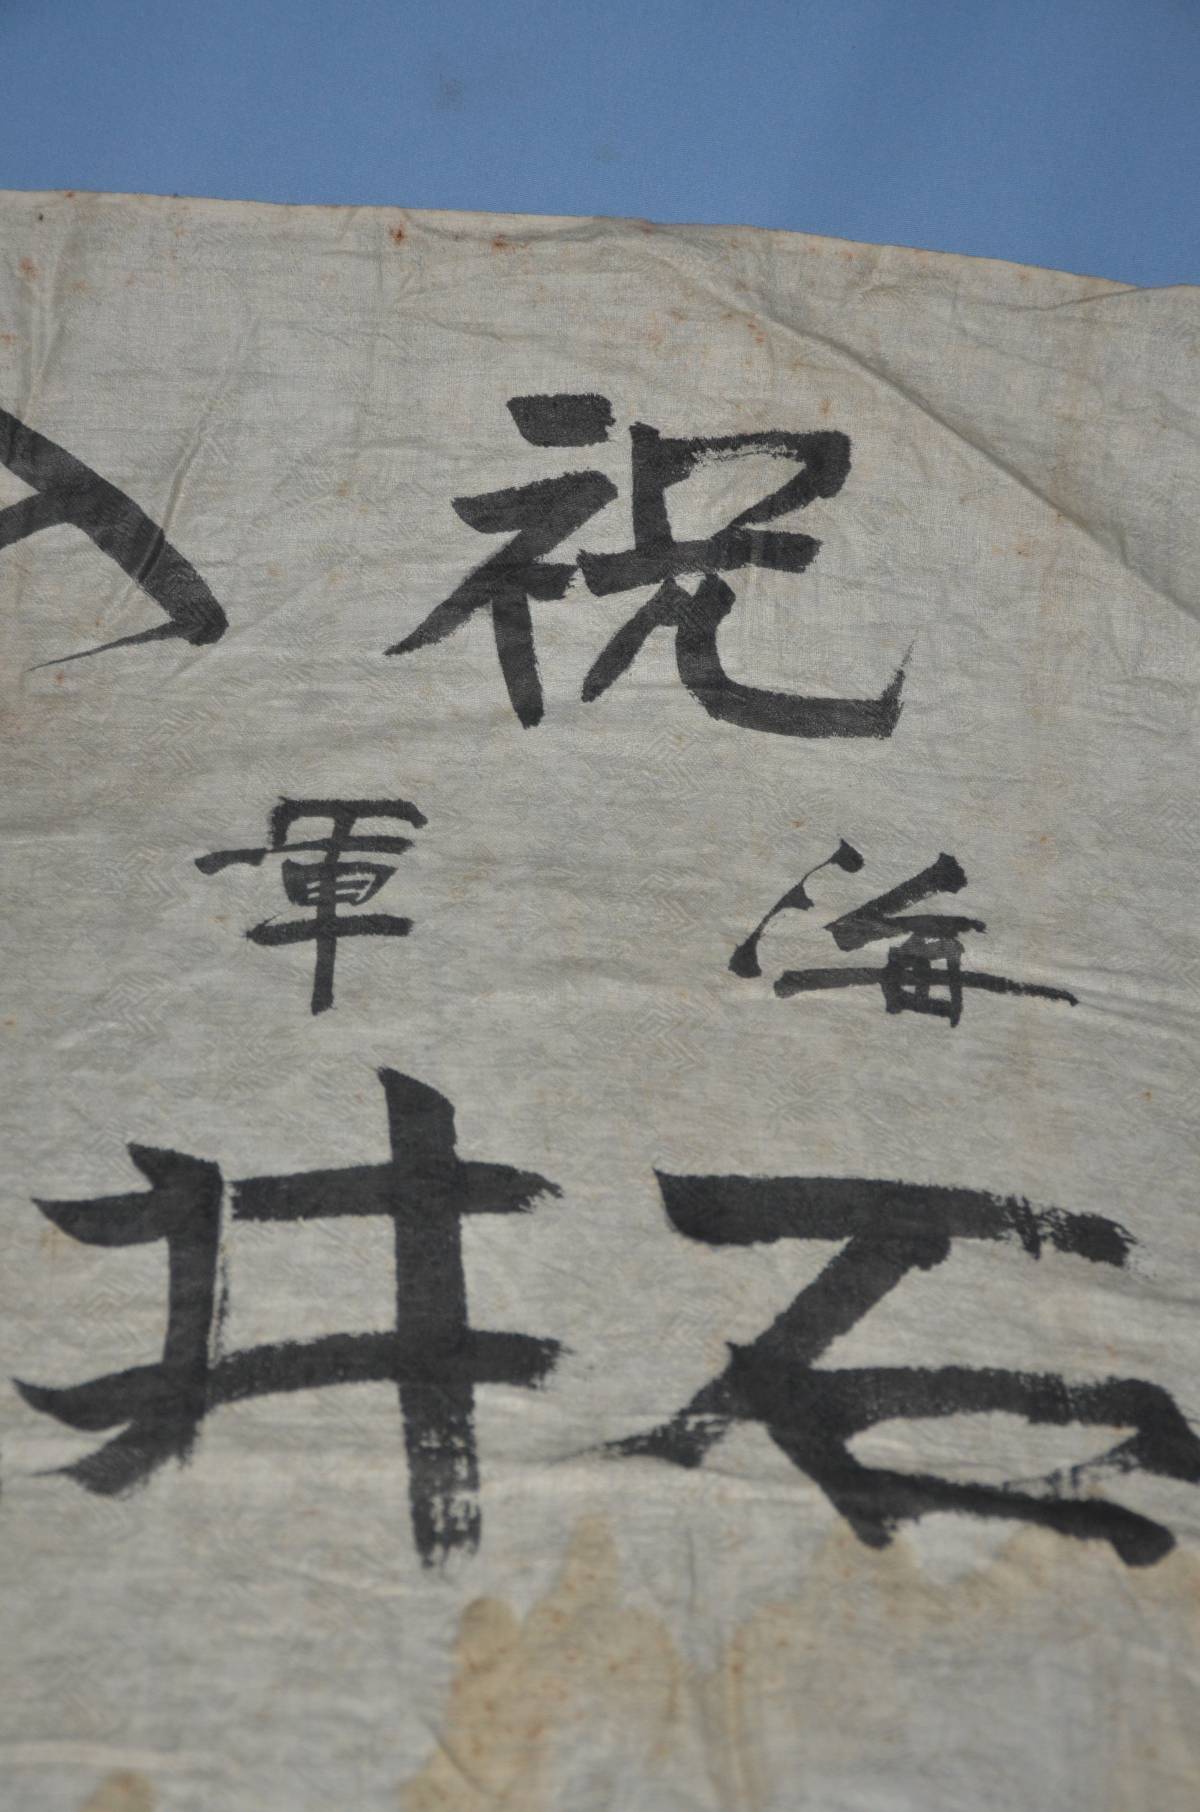 祝
海軍
石井